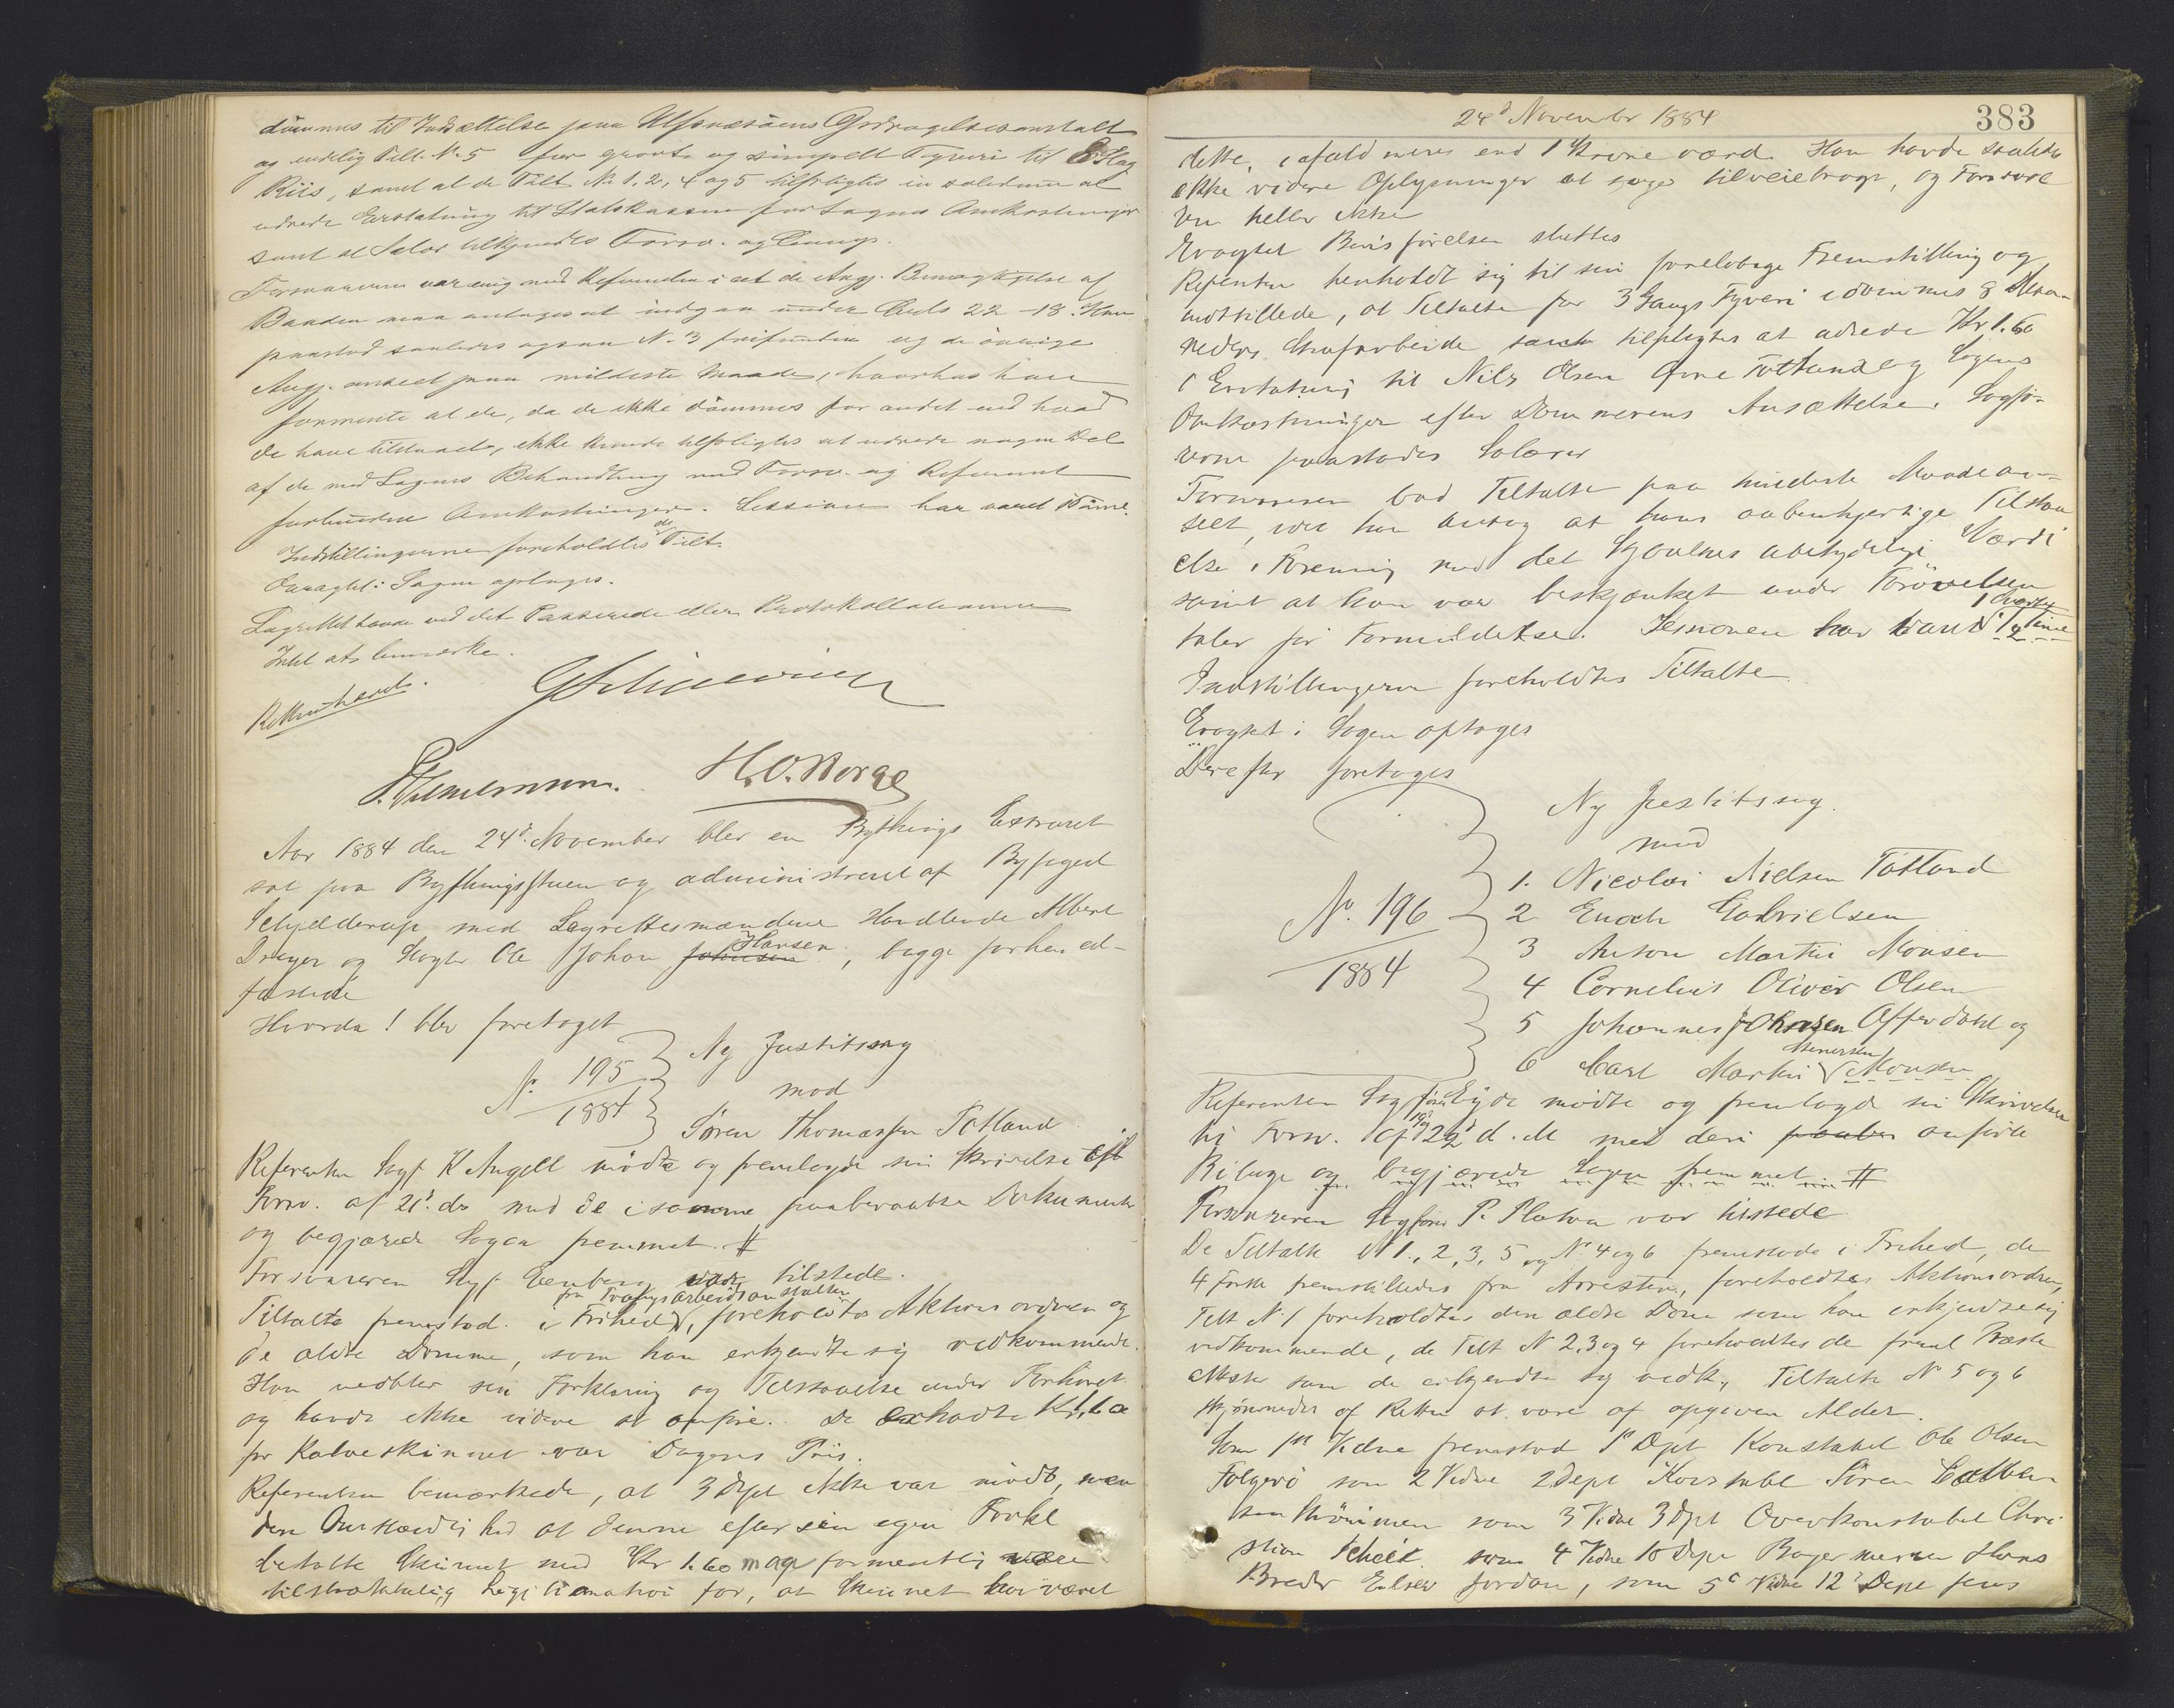 dømmes til Indsættelse paa Ulfsnæsøens Opdragelsesanstalt
og endelig Tilt. N. 5 for grovt og simpelt Tyveri til Slag
Riis, samt at de Tilt N. 1, 2, 4 og 5 tilpligtes in solidum at
udrede Erstatning til Statskassen for Sagens Omkostninger
samt at Salær tilkjendes Forsv. og
Forsvareren var enig med Referenten i at de Angj. Bemægtigelse af
Baaden maa antages at indgaa under Cards 22 - 13. Han
paastod saaledes ogsaa N. 3 frifunden og de øvrige
Angj. anseet paa mildeste Maade, hvorhos han
formente at de, da de ikke dømmes for andet end hvad
de have tilstaaet, ikke kunde tilpligtes at udrede nogen Del
af de med Sagens Behandling med Forsv. og Referent
forbundne Omkostninger. Sessionen har varet 1 Time.
Indstillingerne foreholdtes de Tilt.
Eragtet: Sagen optages.
Lagrettet havde ved det Passerede eller Protokollationen
Intet at bemærke.
Retten hævet.
H. O. Norge
Aar 1884 den 24d. November blev en Bythings Extraret
sat paa Bythingsstuen og administreret af Byfoged
Schjelderup med Lagrettesmændene Handlende Albert
Dreyer og Ole Johan Johnsen Hansen, begge forhen ed-
fæstede
Hvorda! blev foretaget
N. 195/1884 Ny Justitssag
mod
Søren Thomassen Totland
Referenten Sagf K Angell mødte og fremlagde sin Skrivelse til
Forsv. af 21d. ds med de i samme paaberaabte Dokumenter
og begjærede Sagen fremmet. #
Forsvareren Sagf. var tilstede.
fra Tvangsarbeidsanstalten
Tiltalte fremstod i Frihed, foreholdtes Aktionsordren og
de ældre Domme, som han erkjendte sig vedkommende.
Han vedblev sin Forklaring og Tilstaaelse under Forhøret
og havde ikke videre at anføre. De erholdte Kr 1,60
for Kalveskinnet var Dagens Pris.
Referenten bemærkede, at 3 Dept ikke var mødt, men
den Omstændighed at denne efter sin egen Forkl
betalte Skinnet med Kr 1.60 maa formentlig være
tilstrækkelig Legitimation for, at Skinnet har været
24d November 1884
383
dette, i afald mere end 1 Krone værd. Han havde saaledes
ikke videre Oplysninger at søge tilveiebragt, og Forsvare
ren heller ikke
Eragtet Bevisførelsen sluttes
Referenten henholdt sig til sin foreløbige Fremstilling og
indstillede, at Tiltalte for 3 Gangs Tyveri idømmes 8 Maa-
neders Strafarbeide samt tilpligtes at udrede Kr 1.60
i Erstatning til Nils Olsen Øvre Totland og Sagens
Omkostninger efter Dommerens Ansættelse. Sagfø-
rerne paastodes Salærer
Forsvareren bad Tiltalte paa mildeste Maade an-
seet, idet han antog at hans aabenhjertige Tilstaa
else i Forening med det Stjaalnes ubetydelige Værdi
samt at han var beskjænket under Forøvelsen
taler for Formildelse. Sessionen har varet 1/2 Time 1 Kvarter
Indstillingerne foreholdtes Tiltalte
Eragtet: Sagen optages
Derefter foretages
Ny Justitssag.
mod
N. 196/1884
1. Nicolai Nielsen Totland
2 Enoch Gabrielsen
3 Anton Martin Monsen
4 Cornelius Oliver Olsen
5 Johannes Johnsen Offerdahl og
6 Carl Martin Monsen
Referenten Sagfører mødte og fremlagde sin Skrivelse
til Forsv. af 19d og 22d d. M med deri anførte
Bilage og begjærede Sagen fremmet #
Forsvareren Sagfører P. Platou var tilstede
De Tiltalte N 1, 2, 3, 5 og N 4 og 6 fremstode i Frihed, de
4 første fremstilledes fra Arresten, foreholdtes Aktionsordren,
Tilt N. 1 foreholdtes den ældre Dom som han erkjendte sig
vedkommende, de Tilt N 2, 3 og 4 foreholdtes de fremlagte Præste
attester som de erkjendte sig vedk., Tiltalte N 5 og 6
skjønnedes af Retten at være af opgiven Alder.
Som 1ste Vidne fremstod 1ste Dept Konstabel Ole Olsen
Folgerø som 2 Vidne 2 Dept Konstabel Søren
som 3 Vidne 3 Dept Overkonstabel Chri
stian som 4 Vidne 10 Dept Bagermester Hans
Jordan, som 5te Vidne 12te Dept Jens